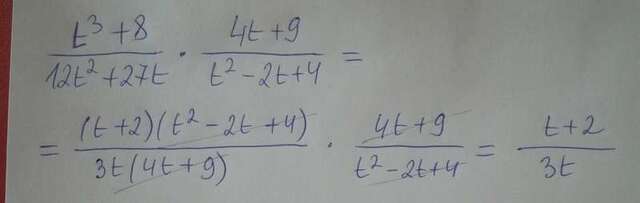 (t³+8)/(12t²+27t) · (4t+9)/(t²-2t+4) =
= ((t+2)(t²-2t+4))/(3t(4t+9)) · (4t+9)/(t²-2t+4) = (t+2)/(3t)